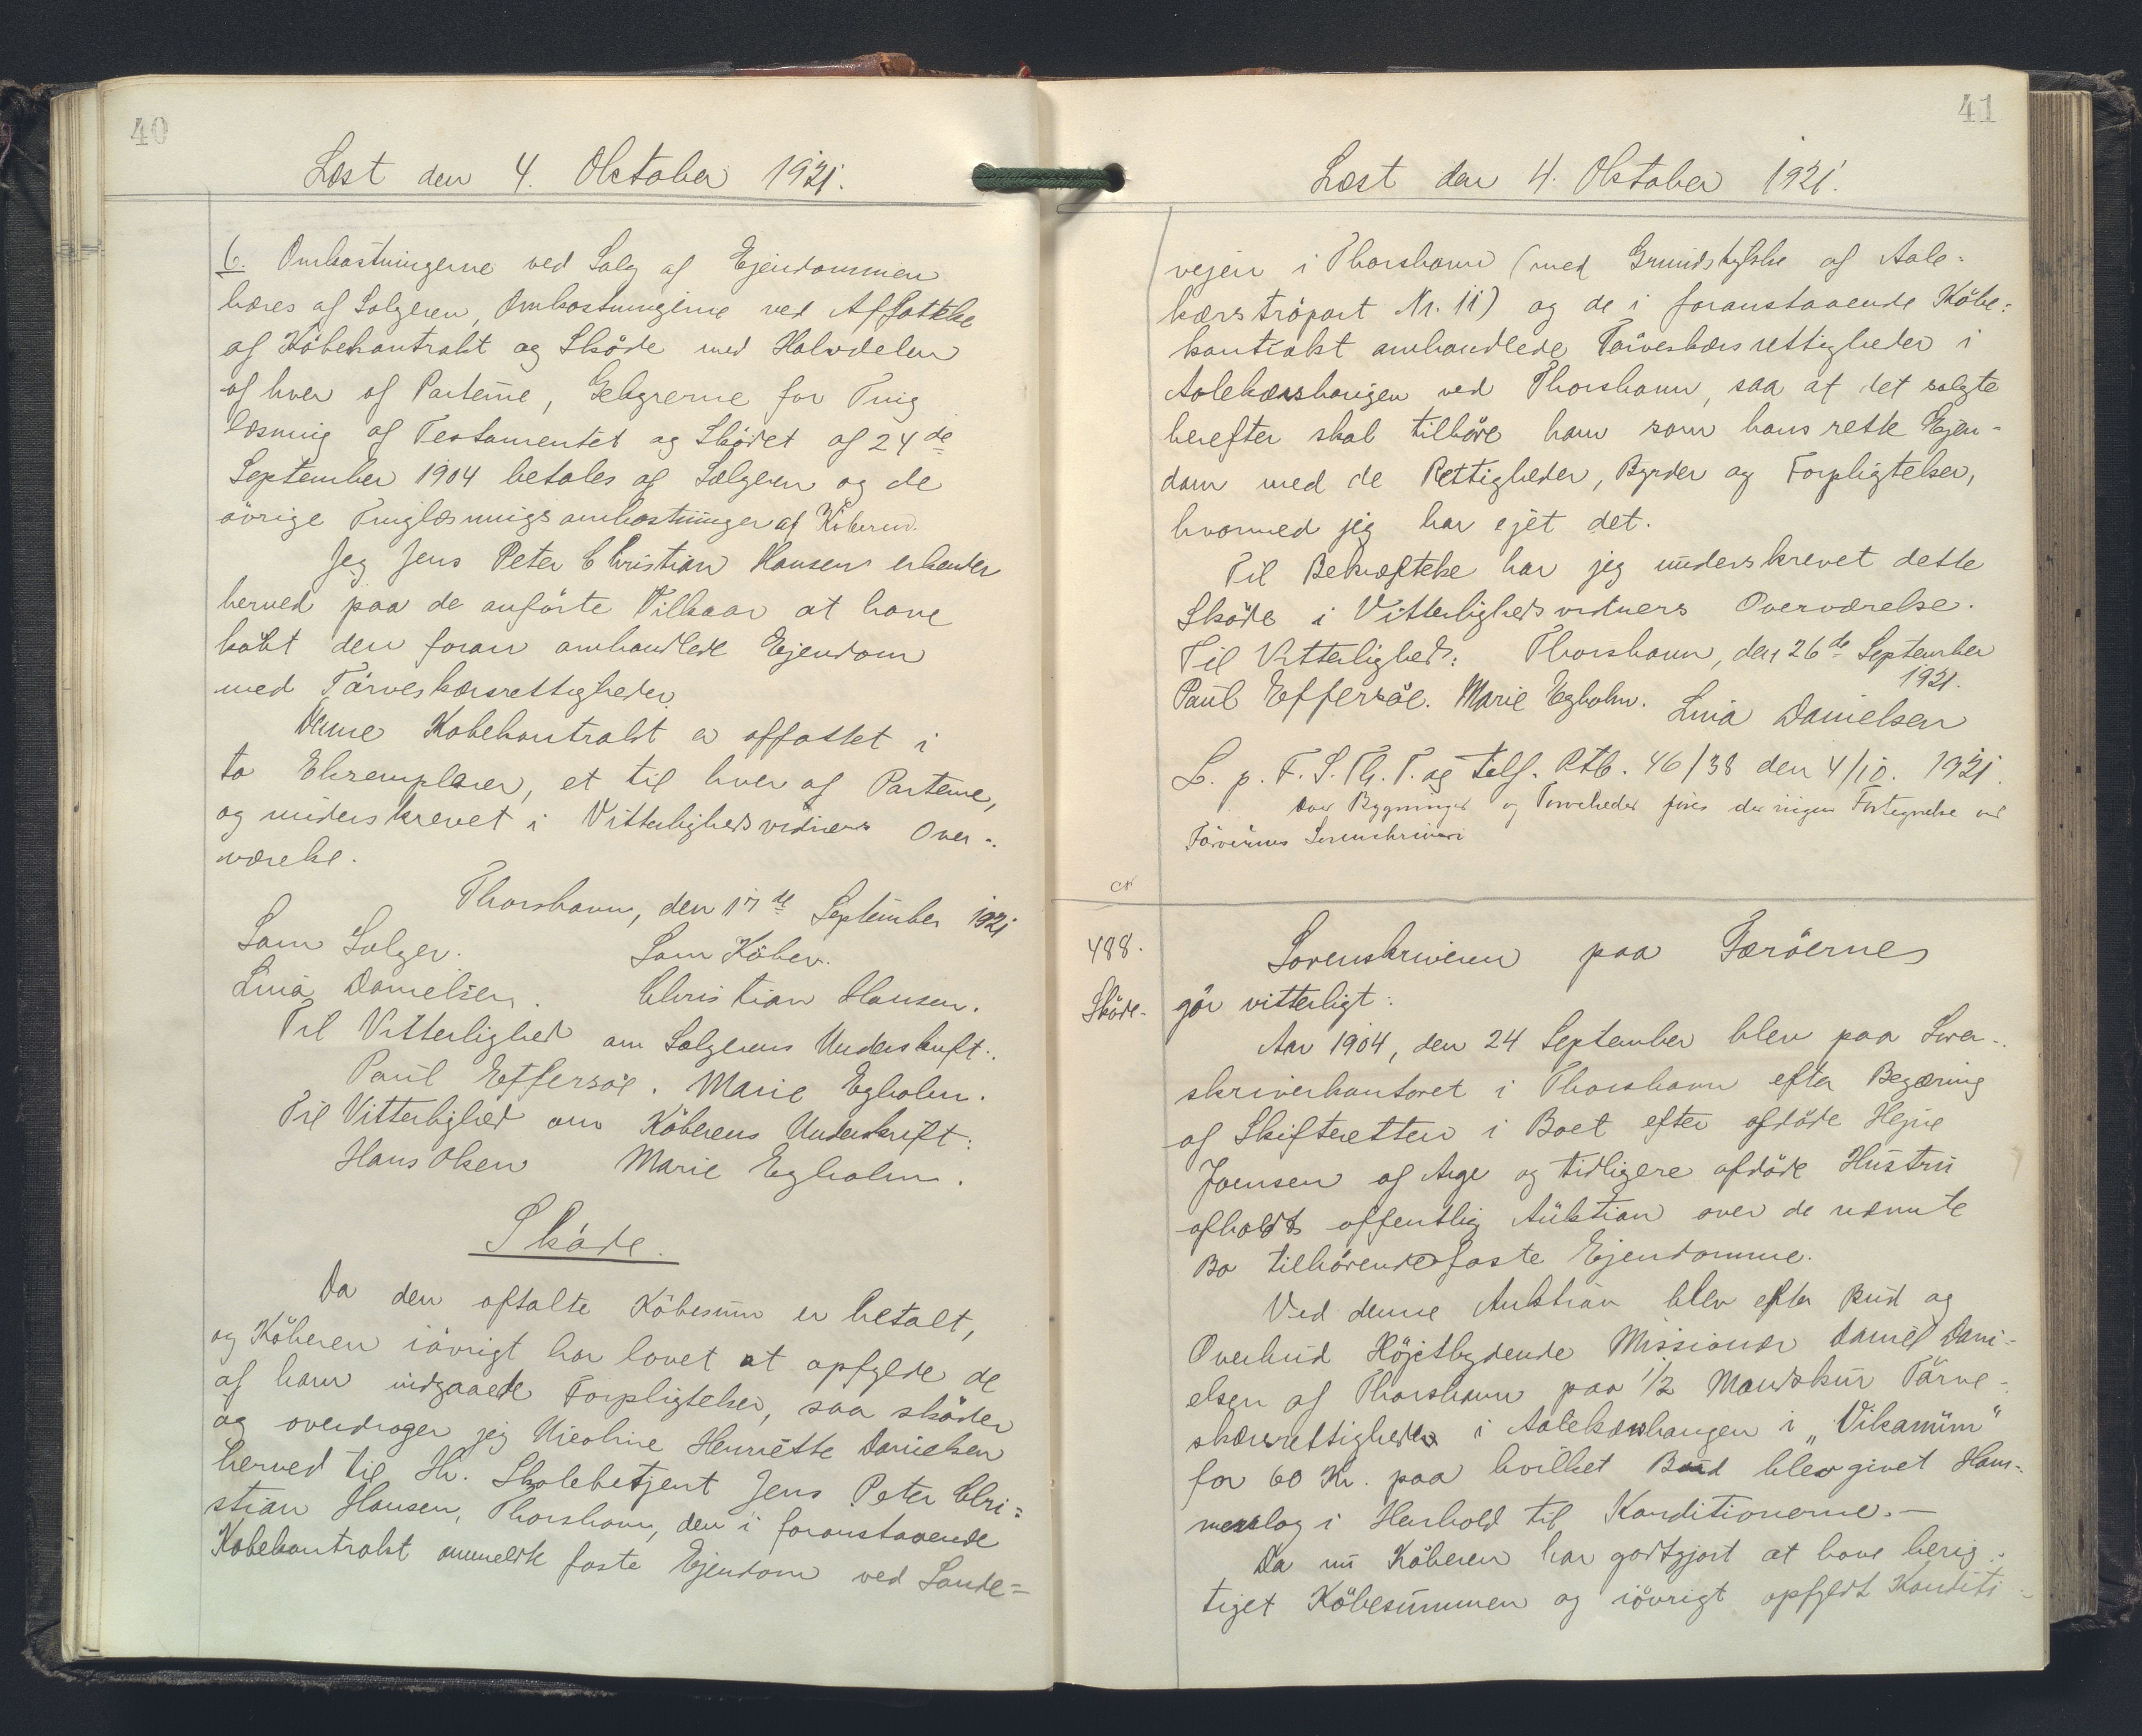 40
Læst den 4. Oktober 1921.
6. Omkostningerne ved Salg af Ejendommen
bæres af Sælgeren, Omkostningerne ved Affattelse
af Köbekontrakt og Sköde med Halvdelen
af hver af Parterne, Gebyrerne for Ting
læsning af Testamentet og Sködet af 24de
September 1904 betales af Sælgeren og de
övrige Tinglæsningsomkostninger af Köberen.
Jeg Jens Peter Christian Hansen erkender
herved paa de anförte Vilkaar at have
köbt den foran omhandlede Ejendom
med Törveskærsrettigheder.
Denne Köbekontrakt er affattet i
to Eksemplarer, et til hver af Parterne,
og underskrevet i Vitterlighedsvidners Over-
værelse.
Thorshavn, den 17de September 1921
Som Sælger. Som Köber.
Lina Danielsen. Christian Hansen.
Til Vitterlighed om Sælgerens Underskrift:
Paul Effersöe. Marie Egholm.
Til Vitterlighed om Köberens Underskrift:
Hans Olsen Marie Egholm.
Sköde.
Da den aftalte Köbesum er betalt,
og Köberen iövrigt har lovet at opfylde de
af ham indgaaede Forpligtelser, saa sköder
og overdrager jeg Nicoline Henriette Danielsen
herved til Hr. Skolebetjent Jens Peter Chri-
stian Hansen, Thorshavn, den i foranstaaende
Köbekontrakt ommeldte faste Ejendom ved Lande-
41
Læst den 4. Oktober 1921.
vejen i Thorshavn (med Grundstykke af Aale-
kærströpart Nr. 11) og de i foranstaaende Köbe-
kontrakt omhandlede Törveskærsrettigheder i
Aalekærshaugen ved Thorshavn, saa at det solgte
herefter skal tilhöre ham som hans rette Ejen-
dom med de Rettigheder, Byrder og Forpligtelser,
hvormed jeg har ejet det.
Til Bekræftelse har jeg underskrevet dette
Sköde i Vitterlighedsvidners Overværelse.
Til Vitterlighed: Thorshavn, den 26de September
1921.
Paul Effersöe. Marie Egholm. Lina Danielsen
L. p. F. S. Th. T. og Tolf. Rtb. 46/38 den 4/10. 1921.
Over Bygninger og Törveheder föres der ingen Fortegnelse ved
Færöernes Sorenskriveri
488.
Sköde.
Sorenskriveren paa Færöerne
gör vitterligt:
Aar 1904, den 24 September blev paa Soren-
skriverkontoret i Thorshavn efter Begæring
af Skifteretten i Boet efter afdöde Hejne
Joensen af Arge og tidligere afdöde Hustru
afholdt offentlig Auktion over de nævnte
Bo tilhörende faste Ejendomme.
Ved denne Auktion blev efter Bud og
Overbud Höjstbydende Missionær Daniel Dani-
elsen af Thorshavn paa 1/2 Mandskur Törve-
skærsrettigheder i Aalekærshaugen i "Vikamüm"
for 60 Kr. paa hvilket Bud blev givet Ham-
merslag i Henhold til Konditionerne.-
Da nu Köberen har godtgjort at have berig-
tiget Köbesummen og iövrigt opfyldt Konditi-